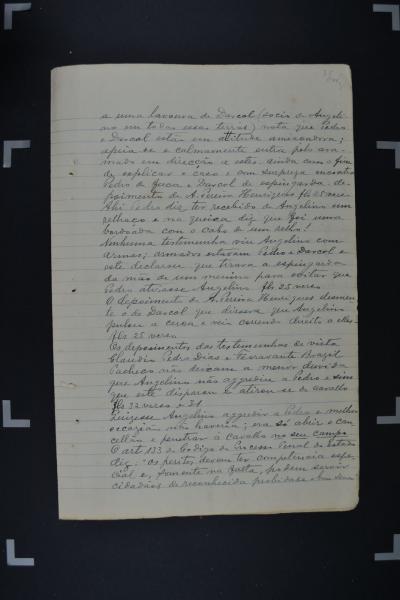 a uma lavoura de Dascol (socio de Angeli-
no em todas essas terras) nota que Pedro
e Dascol estão em attitude ameaçadora;
apeia-se e calmamente entra pelo ara-
mado em direcção a estes ainda com o fim
de explicar o caso e com surpreza encontra
Pedro de faca e Dascol de espingarda. de-
poimento de A. Pereira Henriques fls 25 verso
Ahi Pedro diz ter recebido de Angelino um
relhaço e na queixa diz que foi uma
bordoada com o cabo de um relho!
Nenhuma testemunha viu Angelino com
armas; armados estavam Pedro e Dascol e
este declarou que tirava a espingarda
da mão de um menino para evitar que
Pedro atirasse Angelino fls. 25 verso
O depoimento de A. Pereira Henriques desmen-
te o de Dascol que dissera que Angelino
pulou a cerca e veio correndo direito a elles
fls 25 verso
Os depoimentos das testemunhas de vista
Claudio Pedro Dias e Brazil
Pacheco não deixam a menor duvida
que Angelino não aggrediu a Pedro e sim
que este disparou e atirou-se do cavallo
fls 32 verso e
Quizesse Angelino aggredir a Pedro e melhor
occasião não haveria; era só abrir o can-
cellão e penetrar a cavallo no seu campo
O art. 133 do Codigo do Processo Penal do Estado
diz: "Os peritos devem ter competencia espe-
cial e, somente na falta, podem servir
cidadãos de reconhecida probidade e bom senso